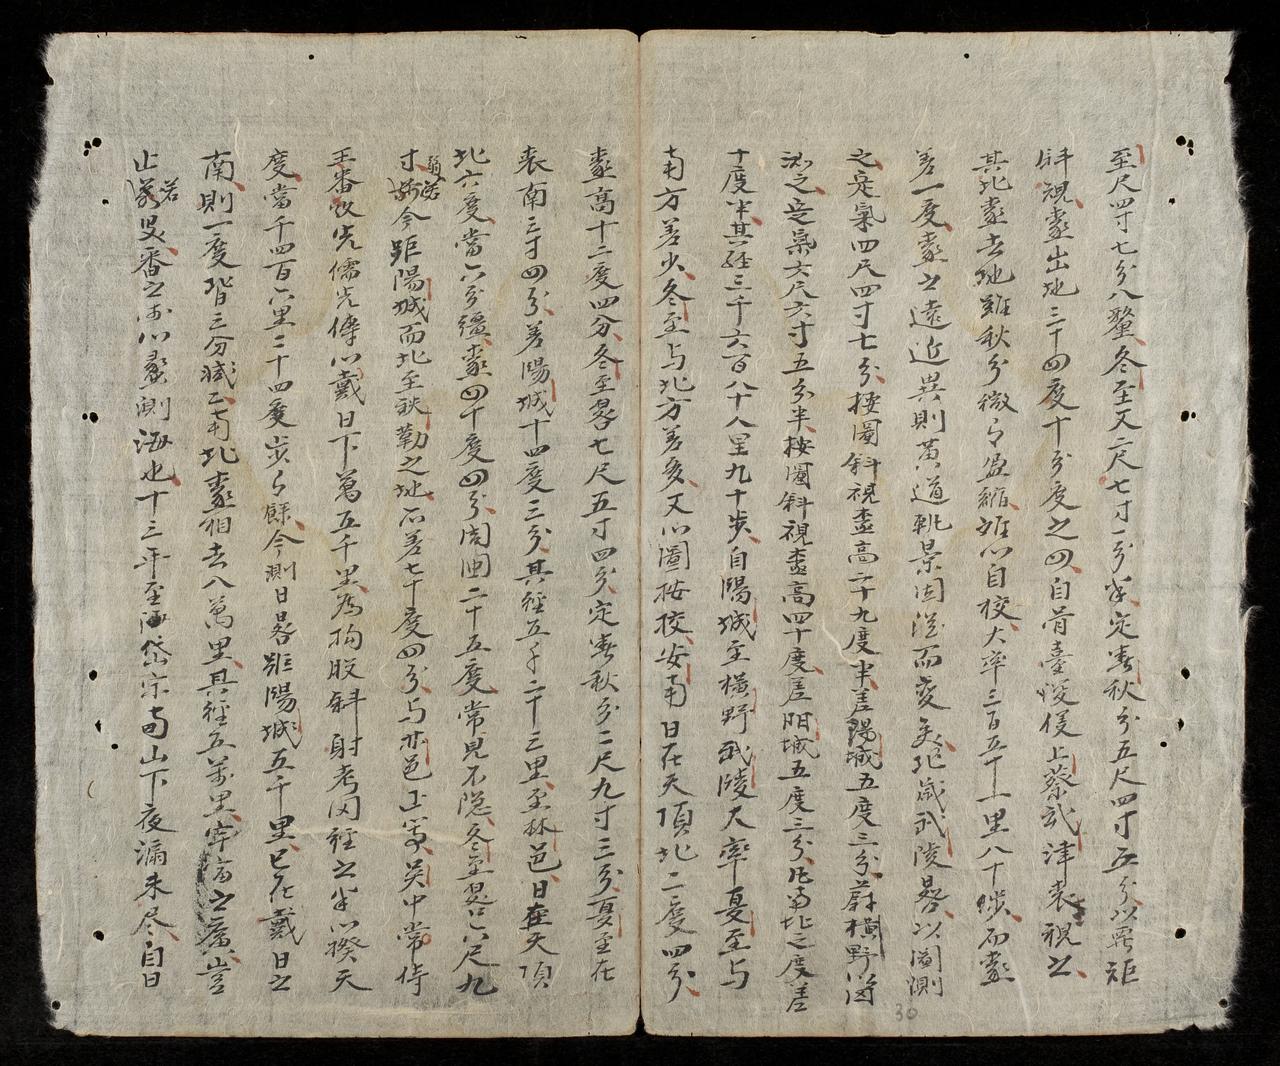 至尺四寸七分八釐冬至丈二尺七寸一分半定春秋分五尺四寸五分以覆矩
斜視極出地三十四度十分度之四自滑臺浚儀上蔡武津表視之
其北極去地雖秋分微有盈縮難以自校大率三百五十一里八十步而極
差一度極之遠近異則黃道軌景固隨而變矣北武陵晷以圖測
之定氣四尺四寸七分按圖斜視極高二十九度半差陽城五度三分蔚橫野
測之定氣六尺六寸五分半按圖斜視極高四十度差陽城五度三分凡南北之度差
十度半其徑三千六百八十八里九十步自陽城至橫野武陵大率夏至与
南方差少冬至与北方差多又以圖按校安南日在天頂北二度四分
極高十二度四分冬至晷七尺五寸四分定春秋分二尺九寸三分夏至在
表南三寸四分差陽城十四度三分其徑五千二十三里至林邑日在天頂
北六度當六分彊極四十度四分周圍二十五度常見不隱冬至晷六尺九
寸今距陽城而北至鉄勒之地亦差七十度四分与林邑正等
王蕃以先儒先傳以戴日下萬五千里為拘股斜射考周徑之半以揆天
度當千四百六里二十四度步有餘今測日晷距陽城五千里已在戴日之
南則一度皆三分減二南北極相去八萬里其徑五萬里宇宙之廣豈
止若是蕃之術以蠡測海也十三年至岱宗南山下夜漏未尽自日